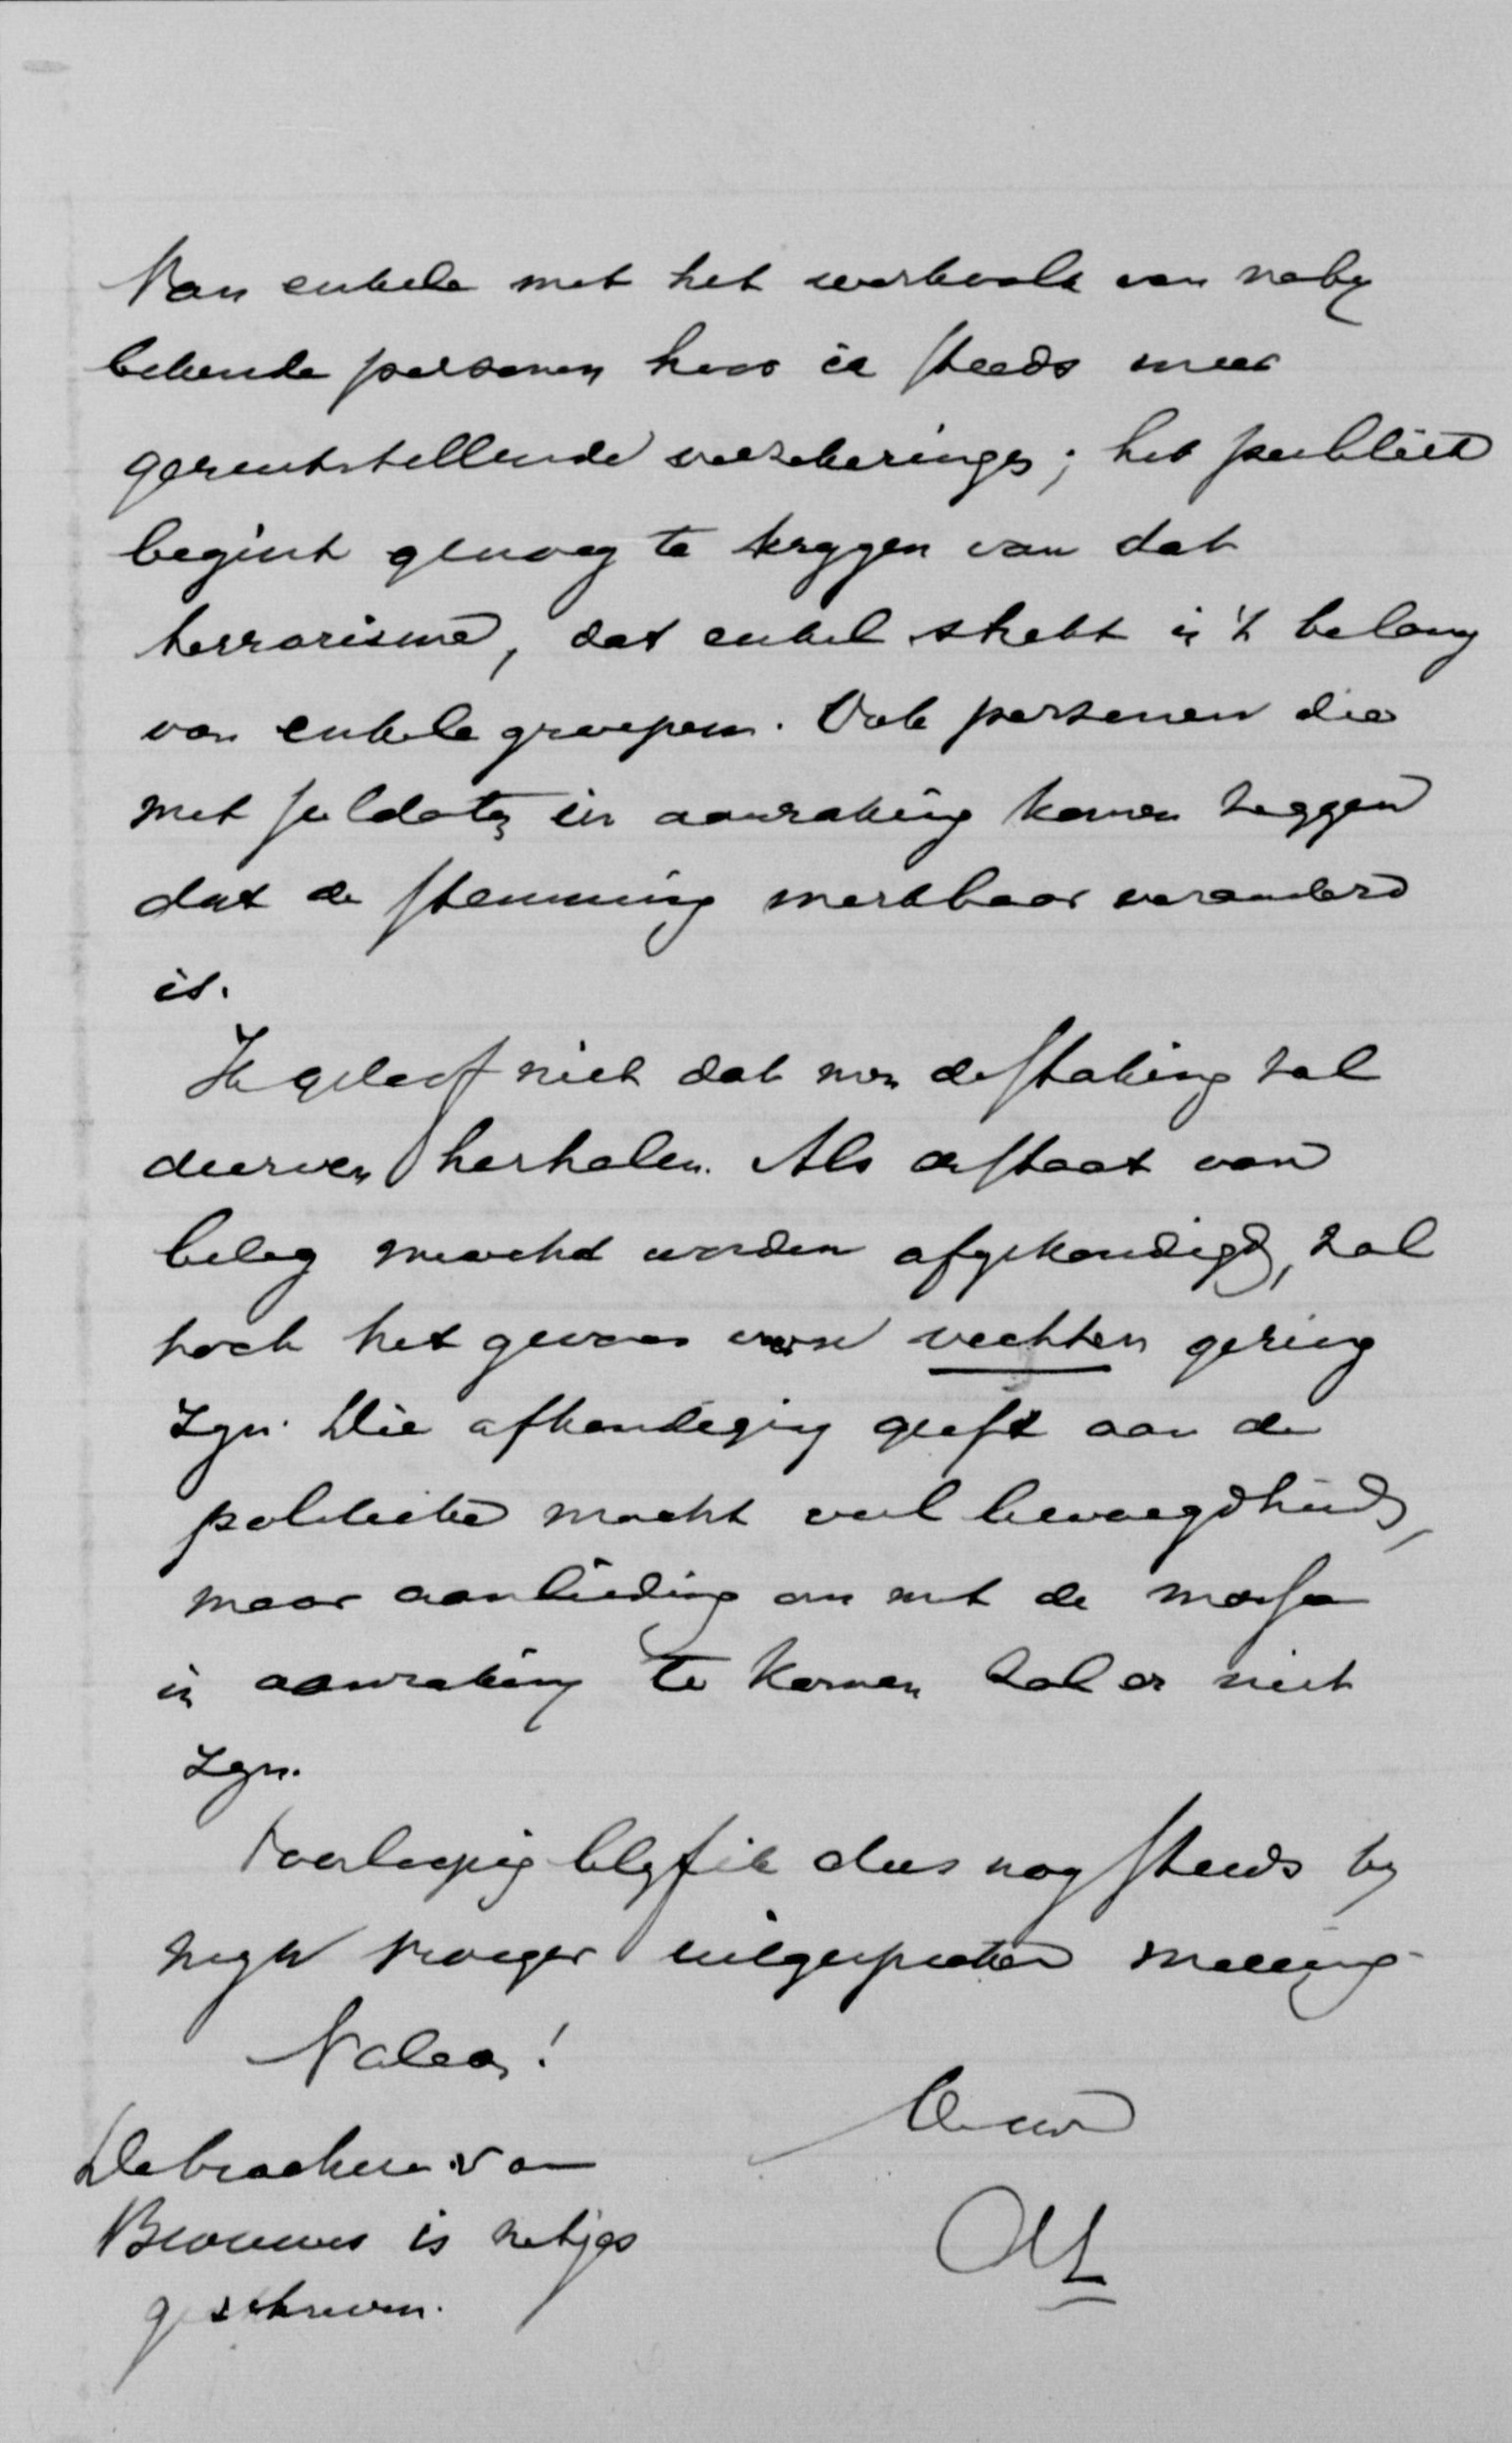 Van enkele met het werkvolk van naby
bekende personen hoor ik steeds meer
geruststellende verzekeringen; het publiek
begint genoeg te krygen van dat
terrorisme, dat enkel strekt in 't belang
van enkele groepen. Ook personen die
met soldaten in aanraking komen zeggen
dat de stemming merkbaar veranderd
is.
Ik geloof niet dat men de staking zal
durven herhalen. Als de staat van
beleg mocht worden afgekondigd, zal
toch het gevaar voor vechten gering
zyn. Die afkondiging geeft aan de
politieke macht veel bevoegdheid,
maar aanleiding om met de massa
in aanraking te komen zal er niet
zyn.
Voorloopig blyf ik dus nog steeds by
myn vroeger uitgesproken meening.
Vale!
De brochure van
Brouwer is netjes
geschreven.